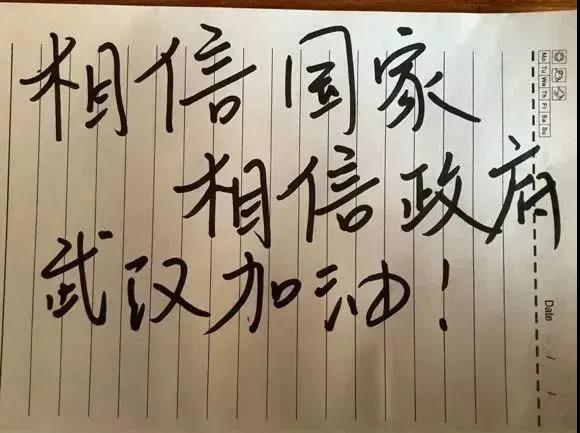 相信国家
相信政府
武汉加油!
Mo Tu We Th Fr Sa Su
Date / /